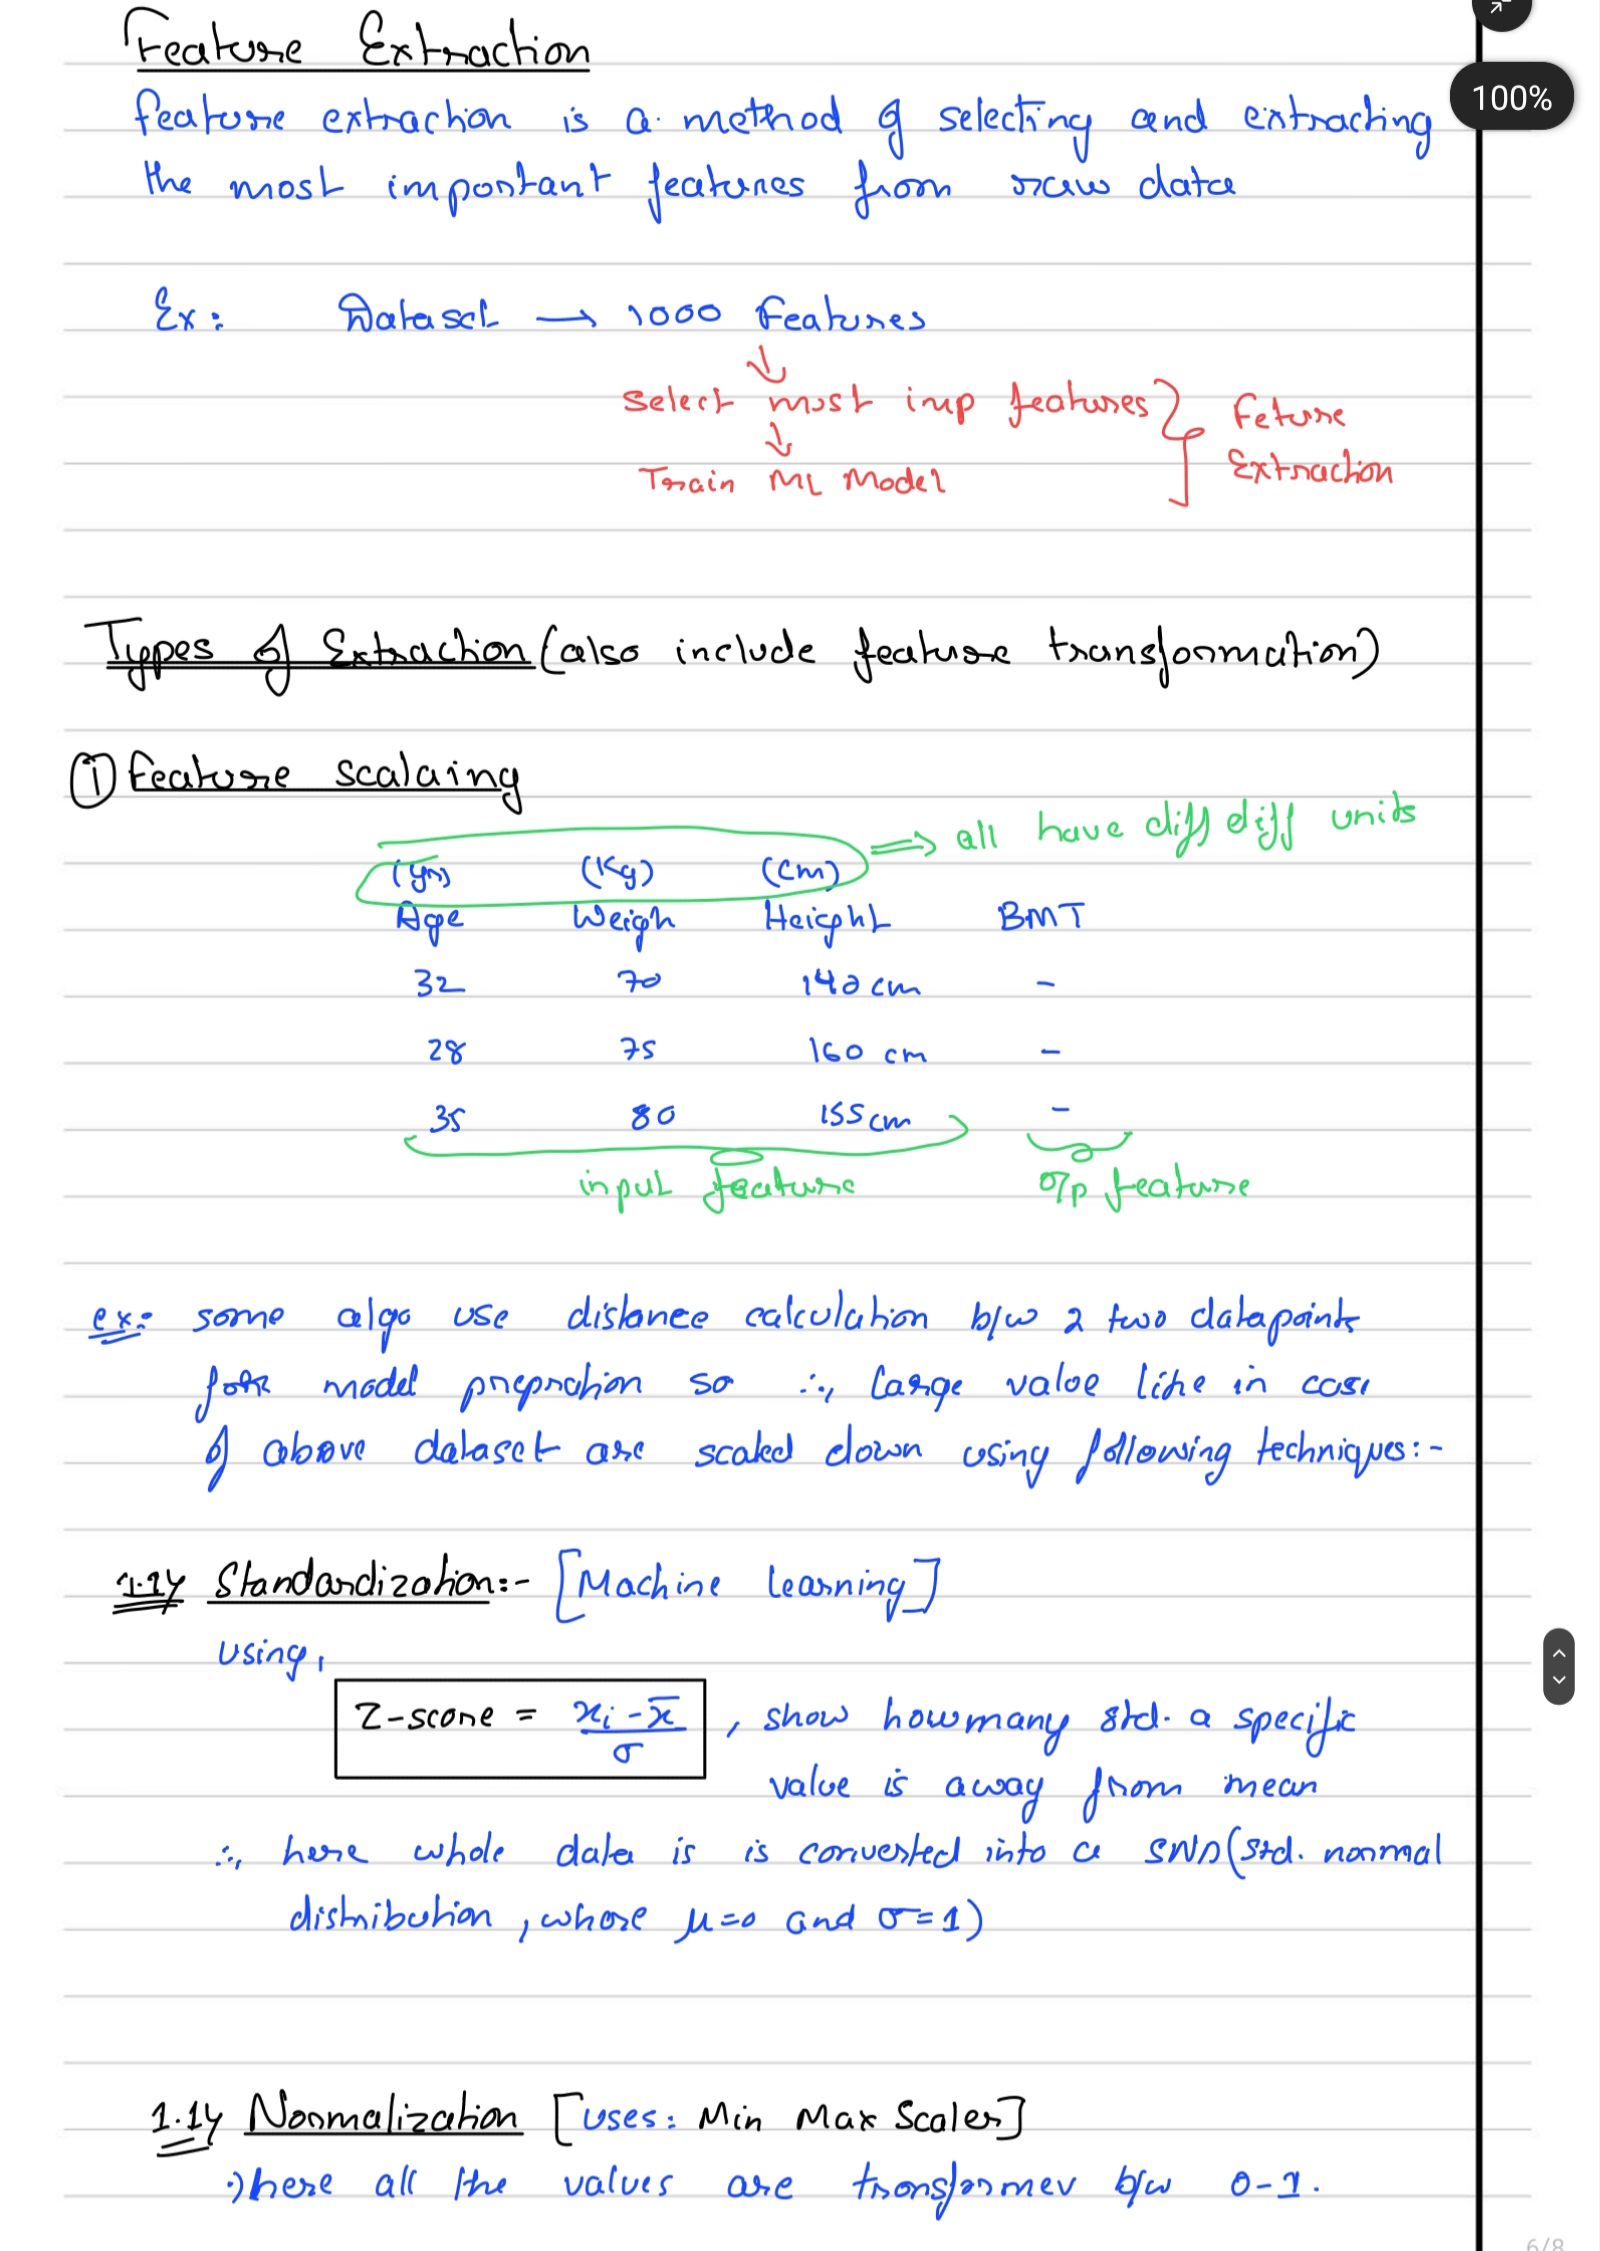 Feature Extraction
100%
feature extraction is a method of selecting and extracting
the most important features from raw data
Ex: Dataset → 1000 Features
↓
Select most imp features
↓
Train ML Model
Feture
Extraction
Types of Extraction (also include feature transformation)
① feature scalaing
⇒ all have diff diff units
(yrs) (Kg) (cm)
Age Weigh Height BMI
32 70 140 cm -
28 75 160 cm -
35 80 155 cm -
input feature o/p feature
ex:- some algo use distance calculation b/w 2 two datapoints
for model prepration so ∴, large value like in case
of above dataset are scaled down using following techniques:-
1.1y Standardization:- [Machine Learning]
Using,
Z-score = xi - x̄ / σ , show howmany std. a specific
value is away from mean
∴, here whole data is is converted into a SND (std. normal
distribution, whose μ=0 and σ=1)
1.1y Normalization [Uses: Min Max Scaler]
:) here all the values are transformev b/w 0-1.
6/8